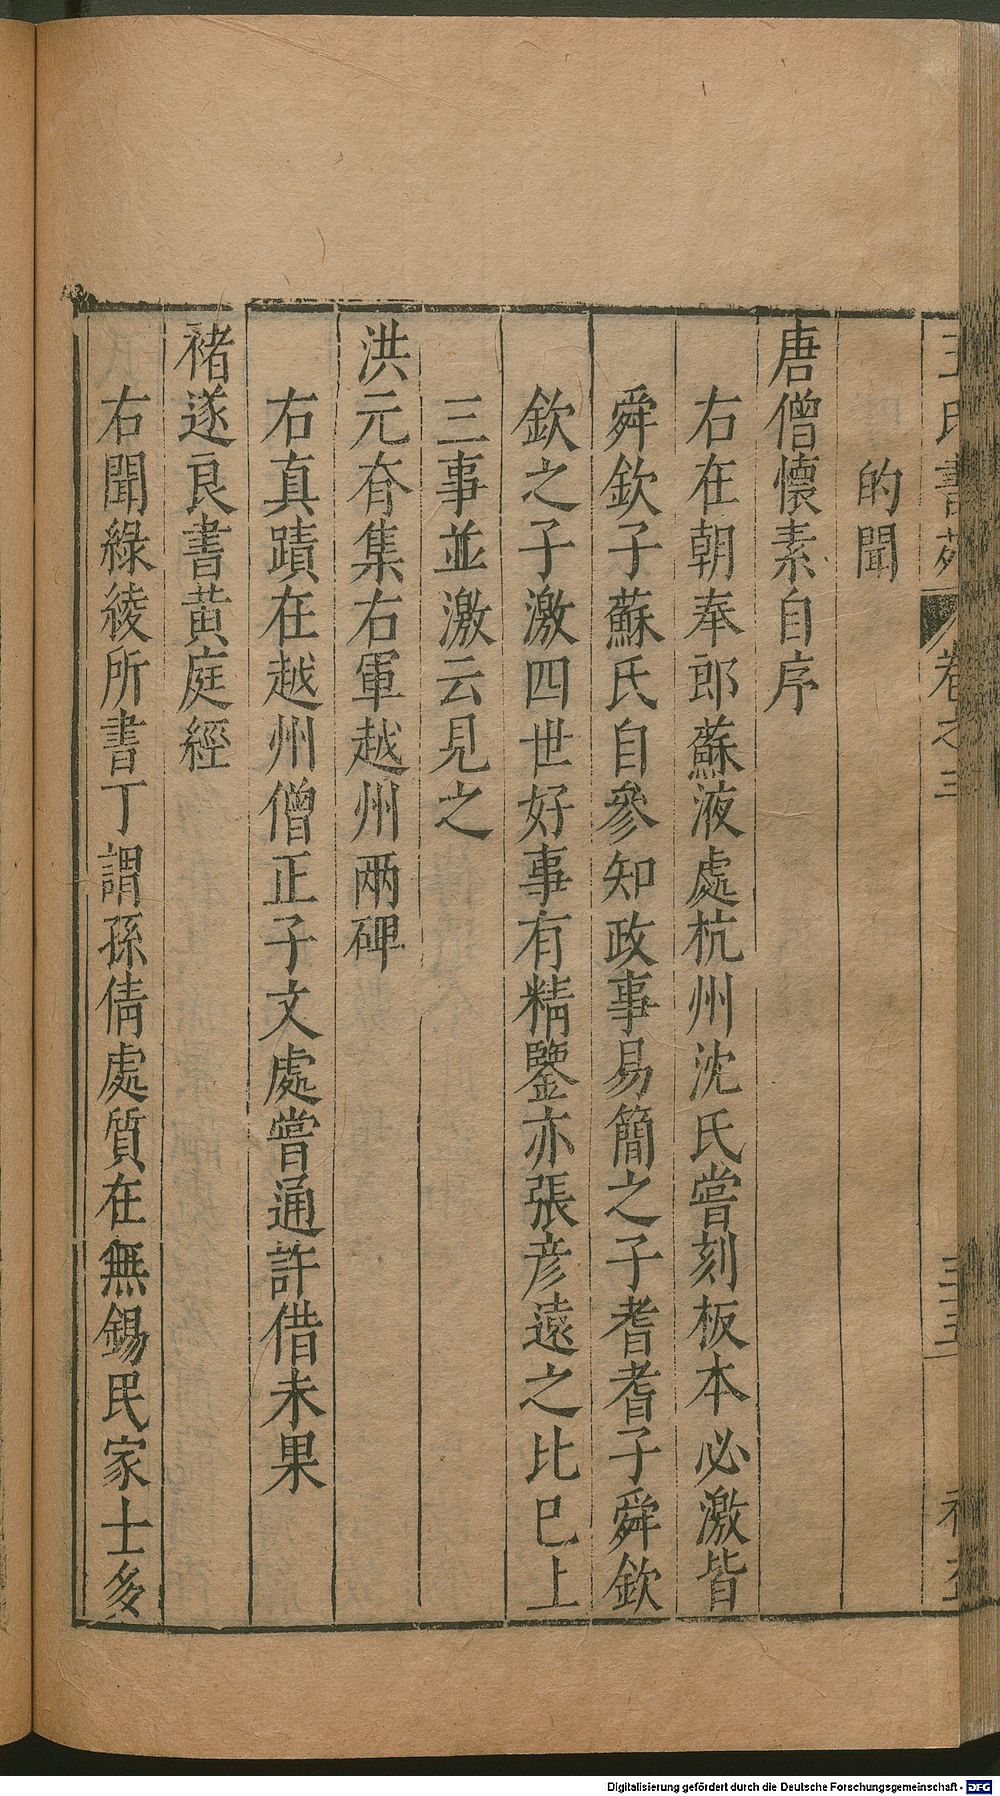 王氏書苑 卷之三 三五
的聞
唐僧懷素自序
右在朝奉郎蘇液處杭州沈氏嘗刻板本必激皆
舜欽子蘇氏自參知政事易簡之子耆耆子舜欽
欽之子激四世好事有精鑒亦張彥遠之比巳上
三事並激云見之
洪元眘集右軍越州兩碑
右真蹟在越州僧正子文處嘗通許借未果
褚遂良書黃庭經
右聞綠綾所書丁謂孫倩處質在無錫民家士多
Digitalisierung gefördert durch die Deutsche Forschungsgemeinschaft - DFG